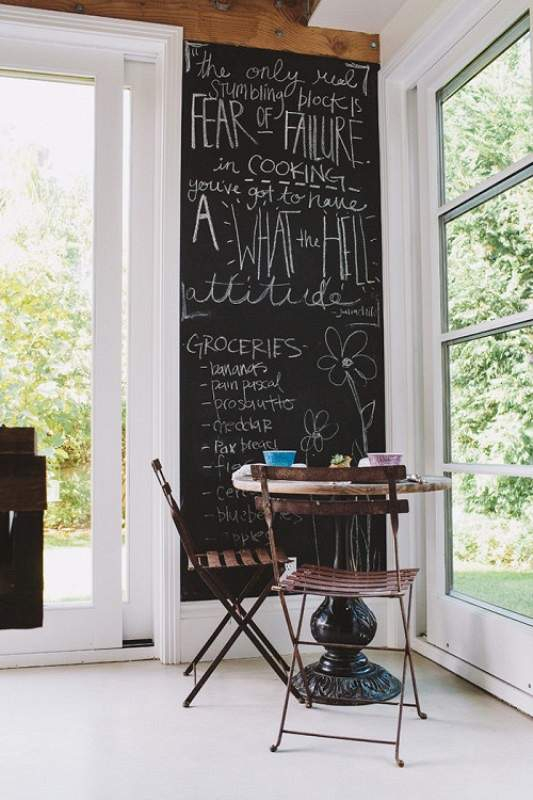 the only real
stumbling block is
FEAR OF FAILURE.
in COOKING
you've got to have
A WHAT the HELL
attitude
- julia child
GROCERIES -
- bananas
- pain pascal
- prosciutto
- cheddar
- Pax bread
- figs
- co
- blueberries
- apples